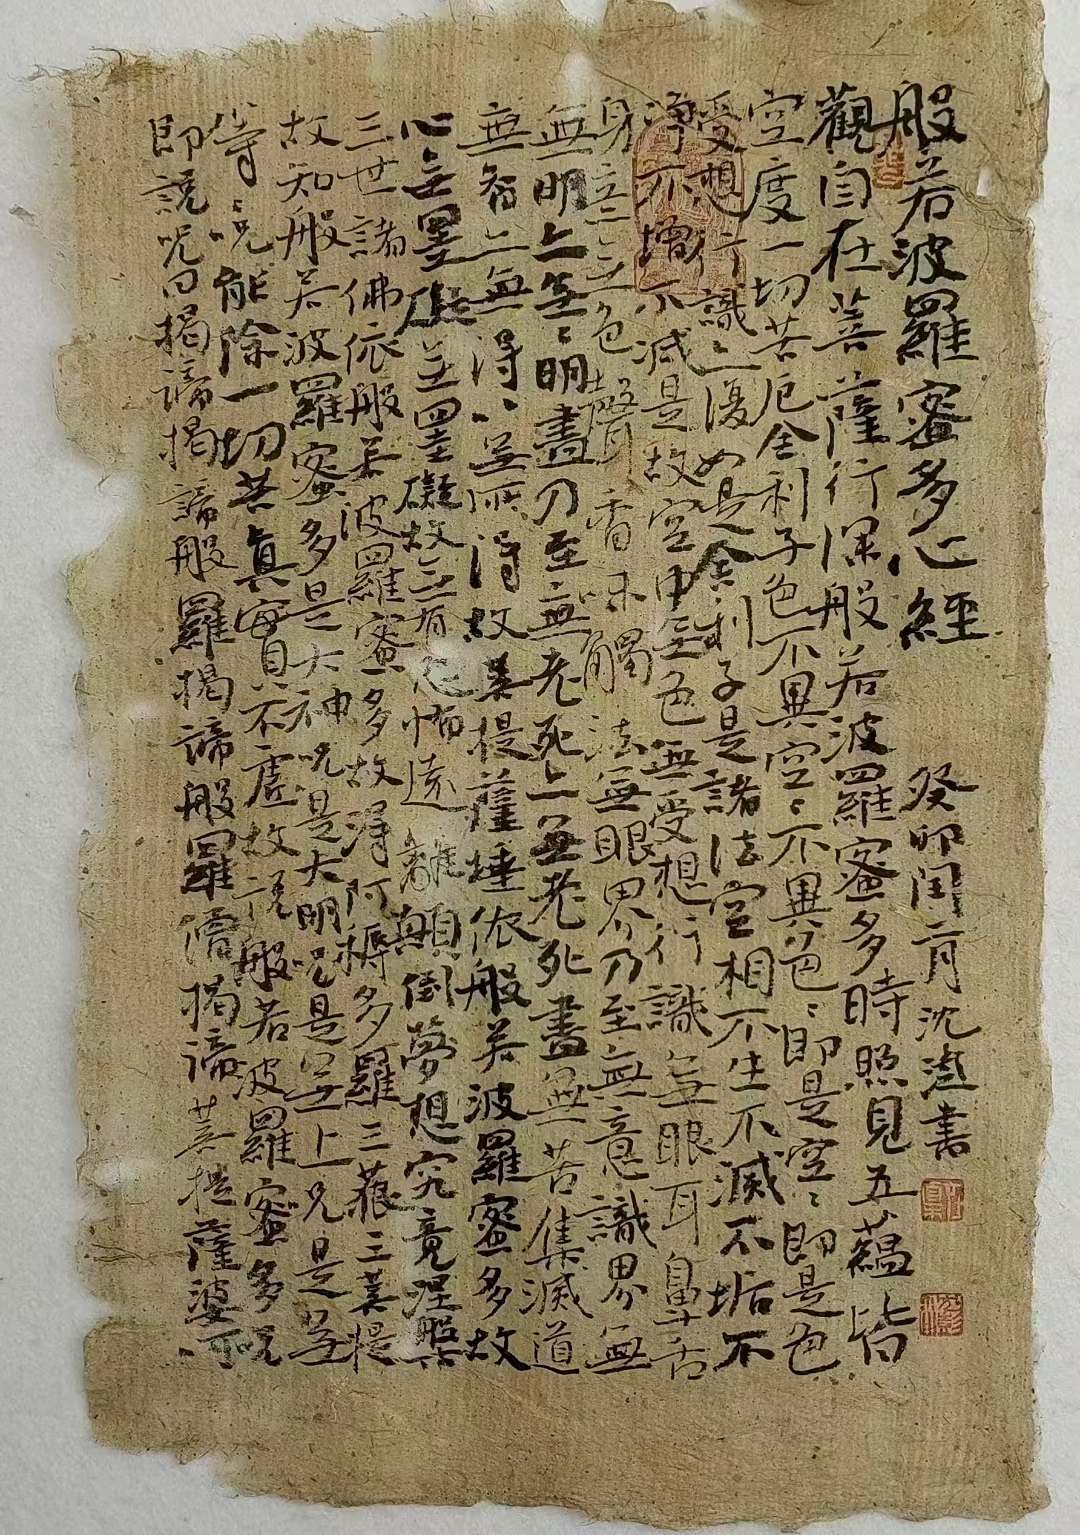 般若波羅蜜多心經 癸卯閏二月沈澁書
觀自在菩薩行深般若波羅蜜多時照見五蘊皆
空度一切苦厄舍利子色不異空〻不異色〻即是空〻即是色
受想行識〻復如是舍利子是諸法空相不生不滅不垢不
淨不增不減是故空中無色無受想行識無眼耳鼻舌
身意無色聲香味觸法無眼界乃至無意識界無
無明亦無〻明盡乃至無老死亦無老死盡無苦集滅道
無智亦無得以無所得故菩提薩埵依般若波羅蜜多故
心無罣礙無罣礙故無有恐怖遠離顛倒夢想究竟涅槃
三世諸佛依般若波羅蜜多故得阿耨多羅三藐三菩提
故知般若波羅蜜多是大神咒是大明咒是無上咒是無
等〻咒能除一切苦真實不虛故說般若波羅蜜多咒
即說咒曰揭諦揭諦般羅揭諦般羅僧揭諦菩提薩婆訶